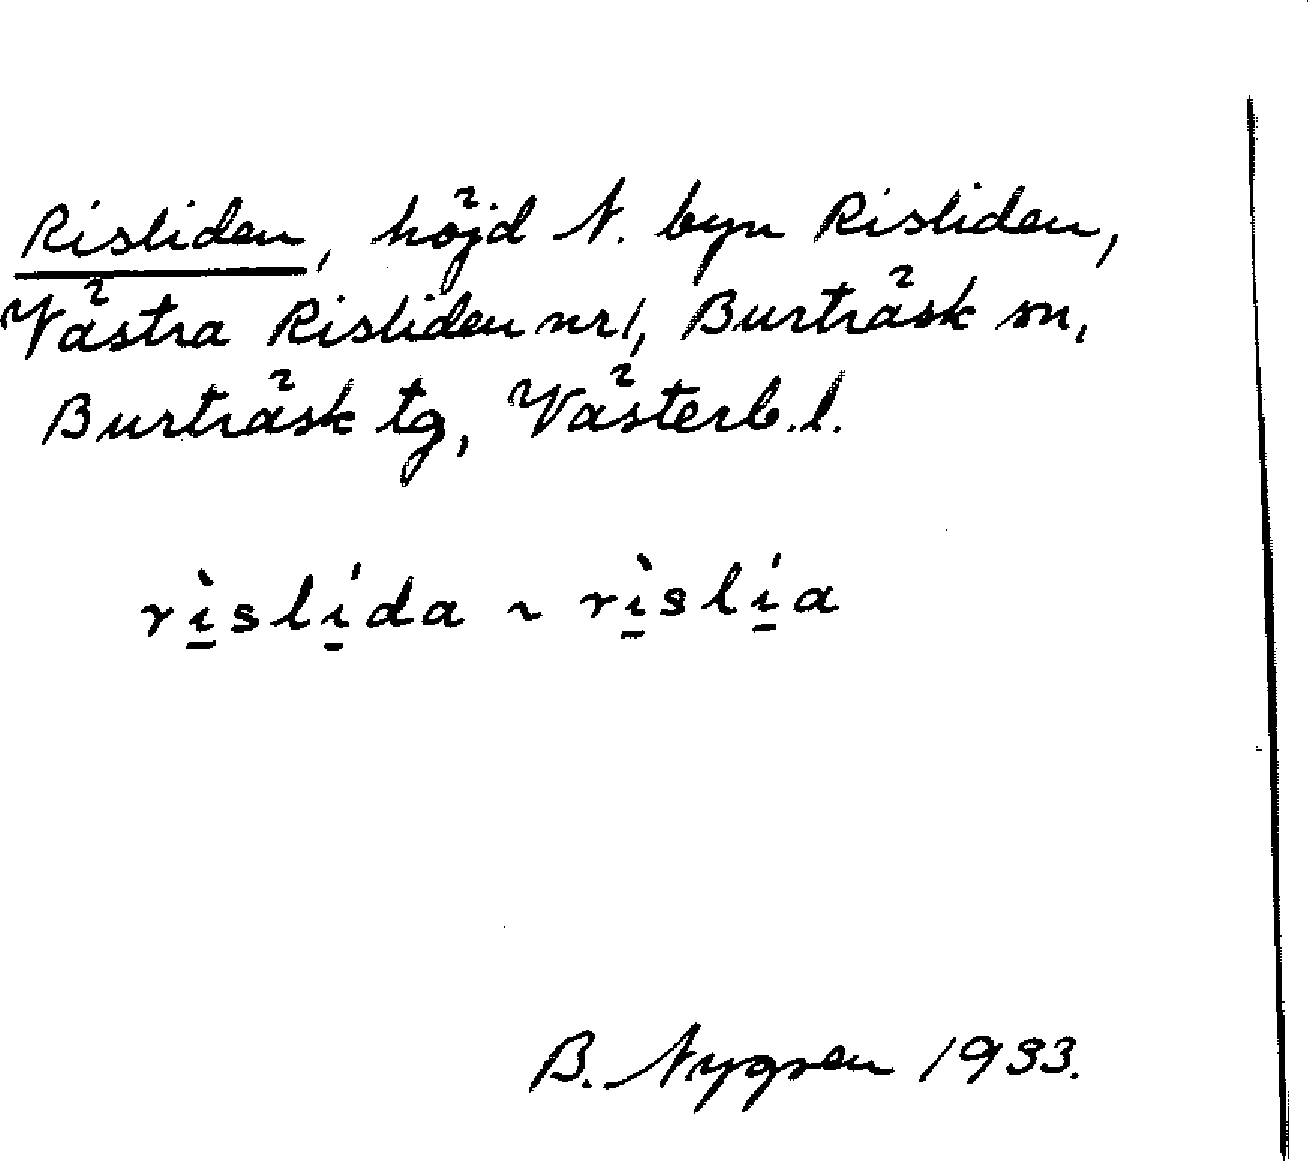 Risliden, höjd N. byn Risliden,
Västra Risliden nr 1, Burträsk sn,
Burträsk tg, Västerb.l.
rı̲̀slı̲́da ~ rı̲̀slı̲́a
B. Nygren 1933.